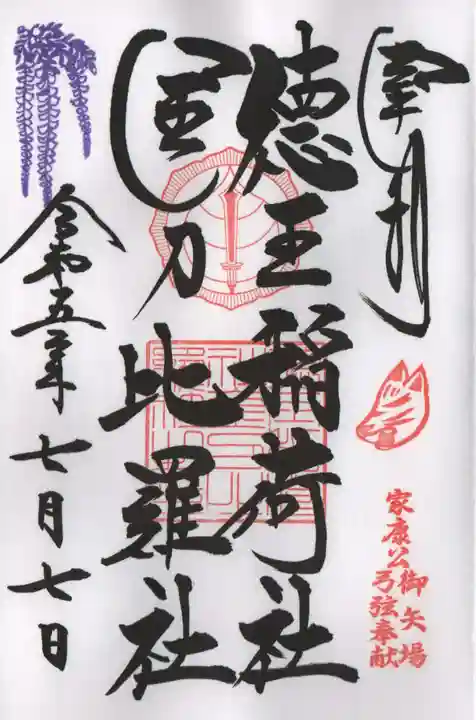 奉拝
徳王稲荷社
金刀比羅社
令和五年
七月七日
家康公御矢場
弓弦奉献